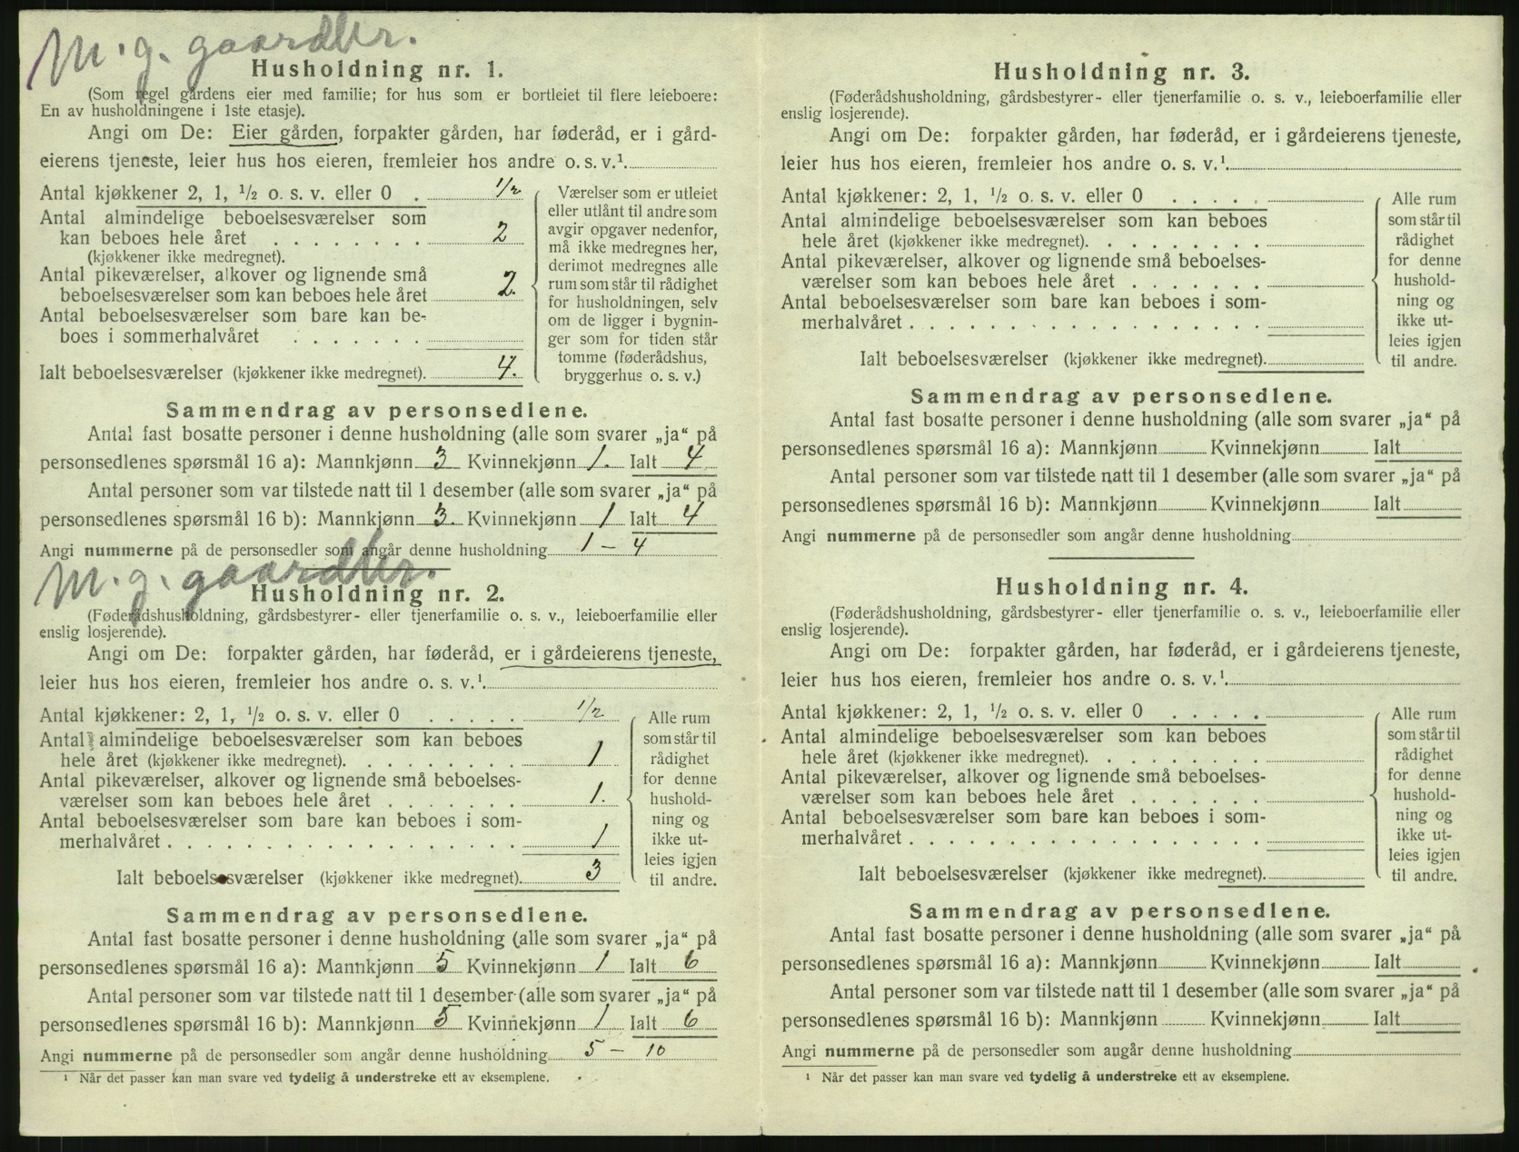 M. g. gaardbr.
Husholdning nr. 1.
(Som regel gårdens eier med familie; for hus som er bortleiet til flere leieboere:
En av husholdningene i 1ste etasje).
Angi om De: Eier gården, forpakter gården, har føderåd, er i gård-
eierens tjeneste, leier hus hos eieren, fremleier hos andre o. s. v.¹
Antal kjøkkener 2, 1, ½ o. s. v. eller 0 . 1/2
Antal almindelige beboelsesværelser som
kan beboes hele året . . . . . . . . 2
(kjøkkener ikke medregnet).
Antal pikeværelser, alkover og lignende små
beboelsesværelser som kan beboes hele året 2.
Antal beboelsesværelser som bare kan be-
boes i sommerhalvåret . . . . . . .
Ialt beboelsesværelser (kjøkkener ikke medregnet). 4.
Værelser som er utleiet
eller utlånt til andre som
avgir opgaver nedenfor,
må ikke medregnes her,
derimot medregnes alle
rum som står til rådighet
for husholdningen, selv
om de ligger i bygnin-
ger som for tiden står
tomme (føderådshus,
bryggerhus o. s. v.)
Sammendrag av personsedlene.
Antal fast bosatte personer i denne husholdning (alle som svarer „ja“ på
personsedlenes spørsmål 16 a): Mannkjønn 3 Kvinnekjønn 1. Ialt 4
Antal personer som var tilstede natt til 1 desember (alle som svarer „ja“ på
personsedlenes spørsmål 16 b): Mannkjønn 3. Kvinnekjønn 1 Ialt 4
Angi nummerne på de personsedler som angår denne husholdning 1 – 4
M. g. gaardbr.
Husholdning nr. 2.
(Føderådshusholdning, gårdsbestyrer- eller tjenerfamilie o. s. v., leieboerfamilie eller
enslig losjerende).
Angi om De: forpakter gården, har føderåd, er i gårdeierens tjeneste,
leier hus hos eieren, fremleier hos andre o. s. v.¹
Antal kjøkkener: 2, 1, ½ o. s. v. eller 0 . . . . . 1/2
Antal almindelige beboelsesværelser som kan beboes
hele året (kjøkkener ikke medregnet). . . . . . . . 1
Antal pikeværelser, alkover og lignende små beboelses-
værelser som kan beboes hele året . . . . . . . 1.
Antal beboelsesværelser som bare kan beboes i som-
merhalvåret . . . . . . . . . . . . . . . . . . 1
Ialt beboelsesværelser (kjøkkener ikke medregnet). 3
Alle rum
som står til
rådighet
for denne
hushold-
ning og
ikke ut-
leies igjen
til andre.
Sammendrag av personsedlene.
Antal fast bosatte personer i denne husholdning (alle som svarer „ja“ på
personsedlenes spørsmål 16 a): Mannkjønn 5 Kvinnekjønn 1 Ialt 6
Antal personer som var tilstede natt til 1 desember (alle som svarer „ja“ på
personsedlenes spørsmål 16 b): Mannkjønn 5 Kvinnekjønn 1 Ialt 6
Angi nummerne på de personsedler som angår denne husholdning 5 – 10
¹ Når det passer kan man svare ved tydelig å understreke ett av eksemplene.
Husholdning nr. 3.
(Føderådshusholdning, gårdsbestyrer- eller tjenerfamilie o. s. v., leieboerfamilie eller
enslig losjerende).
Angi om De: forpakter gården, har føderåd, er i gårdeierens tjeneste,
leier hus hos eieren, fremleier hos andre o. s. v.¹
Antal kjøkkener: 2, 1, ½ o. s. v. eller 0 . . . . .
Antal almindelige beboelsesværelser som kan beboes
hele året (kjøkkener ikke medregnet). . . . . . . .
Antal pikeværelser, alkover og lignende små beboelses-
værelser som kan beboes hele året . . . . . . .
Antal beboelsesværelser som bare kan beboes i som-
merhalvåret . . . . . . . . . . . . . . . . . .
Ialt beboelsesværelser (kjøkkener ikke medregnet).
Alle rum
som står til
rådighet
for denne
hushold-
ning og
ikke ut-
leies igjen
til andre.
Sammendrag av personsedlene.
Antal fast bosatte personer i denne husholdning (alle som svarer „ja“ på
personsedlenes spørsmål 16 a): Mannkjønn Kvinnekjønn Ialt
Antal personer som var tilstede natt til 1 desember (alle som svarer „ja“ på
personsedlenes spørsmål 16 b): Mannkjønn Kvinnekjønn Ialt
Angi nummerne på de personsedler som angår denne husholdning
Husholdning nr. 4.
(Føderådshusholdning, gårdsbestyrer- eller tjenerfamilie o. s. v., leieboerfamilie eller
enslig losjerende).
Angi om De: forpakter gården, har føderåd, er i gårdeierens tjeneste,
leier hus hos eieren, fremleier hos andre o. s. v.¹
Antal kjøkkener: 2, 1, ½ o. s. v. eller 0 . . . . .
Antal almindelige beboelsesværelser som kan beboes
hele året (kjøkkener ikke medregnet). . . . . . . .
Antal pikeværelser, alkover og lignende små beboelses-
værelser som kan beboes hele året . . . . . . .
Antal beboelsesværelser som bare kan beboes i som-
merhalvåret . . . . . . . . . . . . . . . . . .
Ialt beboelsesværelser (kjøkkener ikke medregnet).
Alle rum
som står til
rådighet
for denne
hushold-
ning og
ikke ut-
leies igjen
til andre.
Sammendrag av personsedlene.
Antal fast bosatte personer i denne husholdning (alle som svarer „ja“ på
personsedlenes spørsmål 16 a): Mannkjønn Kvinnekjønn Ialt
Antal personer som var tilstede natt til 1 desember (alle som svarer „ja“ på
personsedlenes spørsmål 16 b): Mannkjønn Kvinnekjønn Ialt
Angi nummerne på de personsedler som angår denne husholdning
¹ Når det passer kan man svare ved tydelig å understreke ett av eksemplene.